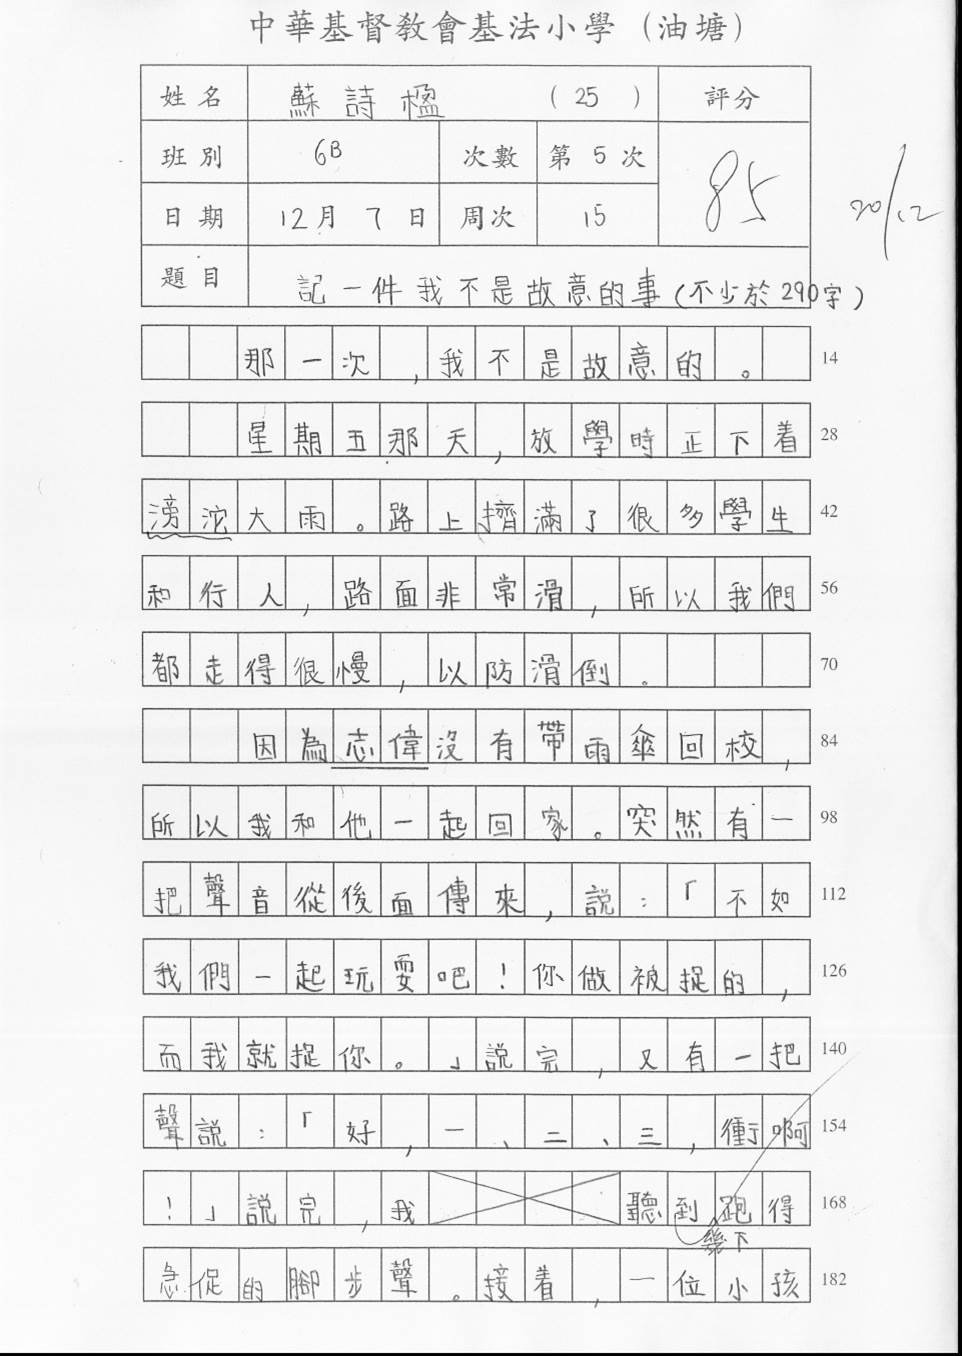 中華基督教會基法小學（油塘）
姓名 蘇詩楹 （25） 評分
班別 6B 次數 第5次 85 20/12
日期 12月7日 周次 15
題目 記一件我不是故意的事(不少於290字)
那一次，我不是故意的。 14
星期五那天，放學時正下着 28
滂沱大雨。路上擠滿了很多學生 42
和行人，路面非常滑，所以我們 56
都走得很慢，以防滑倒。 70
因為志偉沒有帶雨傘回校， 84
所以我和他一起回家。突然有一 98
把聲音從後面傳來，説：「不如 112
我們一起玩耍吧！你做被捉的， 126
而我就捉你。」説完，又有一把 140
聲説：「好，一、二、三，衝啊 154
！」説完，我聽到跑得 168
幾下
急促的腳步聲。接着，一位小孩 182